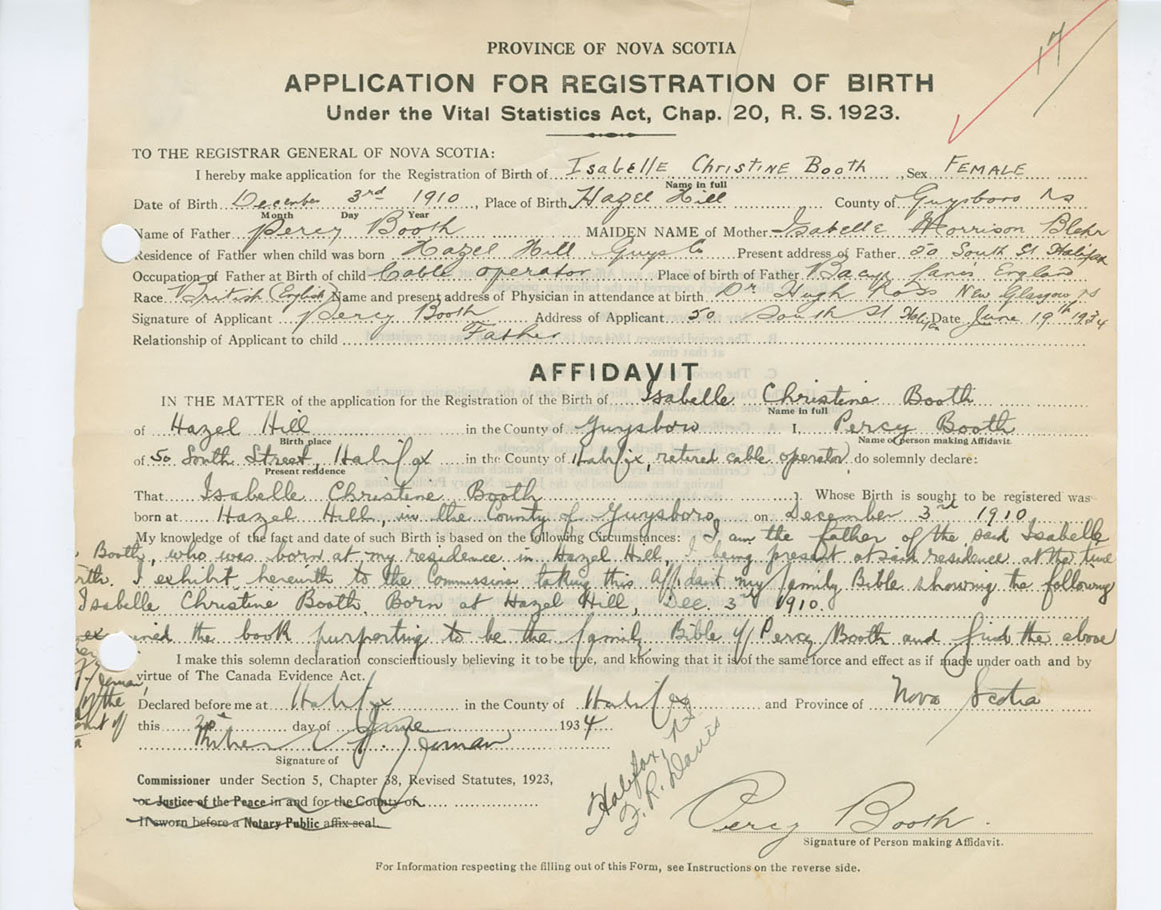 17
PROVINCE OF NOVA SCOTIA
APPLICATION FOR REGISTRATION OF BIRTH
Under the Vital Statistics Act, Chap. 20, R. S. 1923.
TO THE REGISTRAR GENERAL OF NOVA SCOTIA:
I hereby make application for the Registration of Birth of Isabelle Christine Booth Sex FEMALE
Name in full
Date of Birth December 3rd 1910, Place of Birth Hazel Hill County of Guysboro NS
Month Day Year
Name of Father Percy Booth MAIDEN NAME of Mother Isabelle Morrison
Residence of Father when child was born Hazel Hill Guys Co Present address of Father 50 South St Halifax
Occupation of Father at Birth of child Cable operator Place of birth of Father England
Race British (English) Name and present address of Physician in attendance at birth Dr Hugh Ross New Glasgow NS
Signature of Applicant Percy Booth Address of Applicant 50 South St Date June 19th 1934
Relationship of Applicant to child Father
AFFIDAVIT
IN THE MATTER of the application for the Registration of the Birth of Isabelle Christine Booth
Name in full
of Hazel Hill in the County of Guysboro I, Percy Booth
Birth place Name of person making Affidavit.
of 50 South Street, Halifax in the County of Halifax, retired cable operator, do solemnly declare:
Present residence
That Isabelle Christine Booth Whose Birth is sought to be registered was
born at Hazel Hill, in the County of Guysboro on December 3rd 1910
My knowledge of the fact and date of such Birth is based on the following Circumstances: I am the father of the said Isabelle
Booth, who was born at my residence in Hazel Hill, I being present at said residence at the time
I exhibit herewith to the Commissioner taking this Affidavit my family Bible showing the following
Isabelle Christine Booth, Born at Hazel Hill, Dec. 3rd 1910.
the book purporting to be the family Bible of Percy Booth and find the above
I make this solemn declaration conscientiously believing it to be true, and knowing that it is of the same force and effect as if made under oath and by
virtue of The Canada Evidence Act.
Declared before me at Halifax in the County of Halifax and Province of Nova Scotia
this 20 day of June 1934
Signature of
Halifax, NS
F. R. Davis
Commissioner under Section 5, Chapter 38, Revised Statutes, 1923,
or Justice of the Peace in and for the County of
If sworn before a Notary Public affix seal.
Percy Booth.
Signature of Person making Affidavit.
For Information respecting the filling out of this Form, see Instructions on the reverse side.